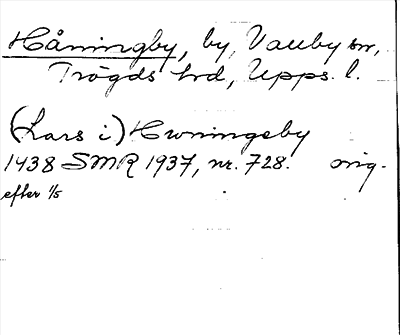 Håningby, by, Vallby sn,
Trögds hd, Upps. l.
(Lars i) Hwningeby
1438 SMR 1937, nr. 728. orig.
efter 1/5